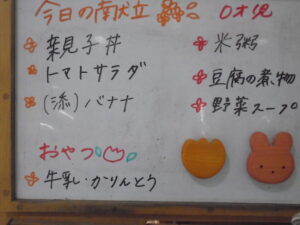 今日の献立
親子丼
トマトサラダ
(添)バナナ
おやつ
牛乳・かりんとう
0才児
米粥
豆腐の煮物
野菜スープ